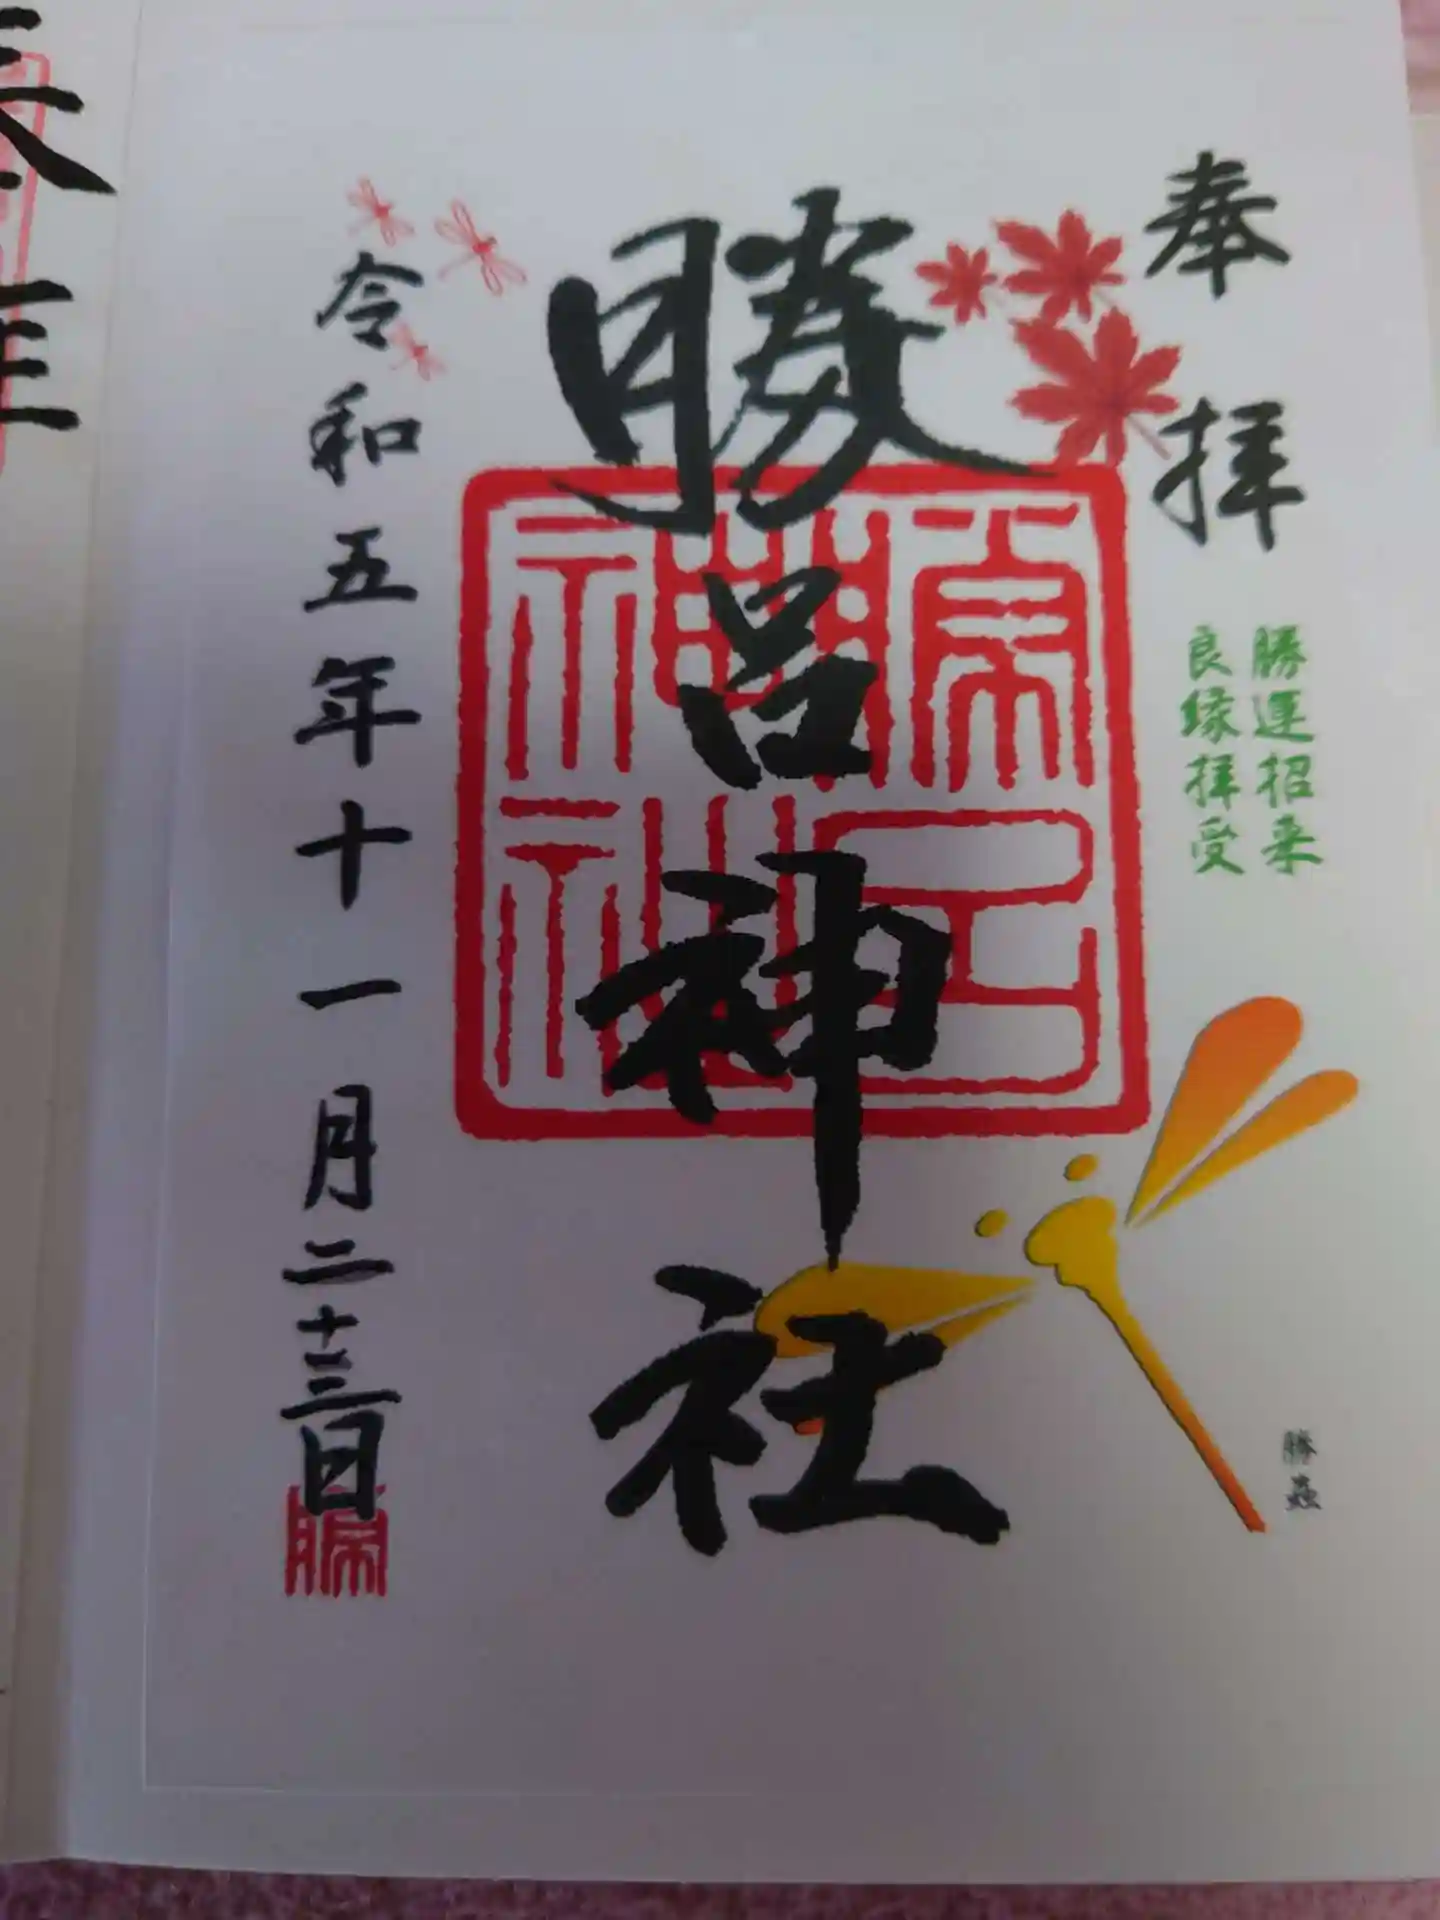 奉拝
勝運招来
良縁拝受
勝呂神社
勝呂神社
勝蟲
令和五年十一月二十三日
勝